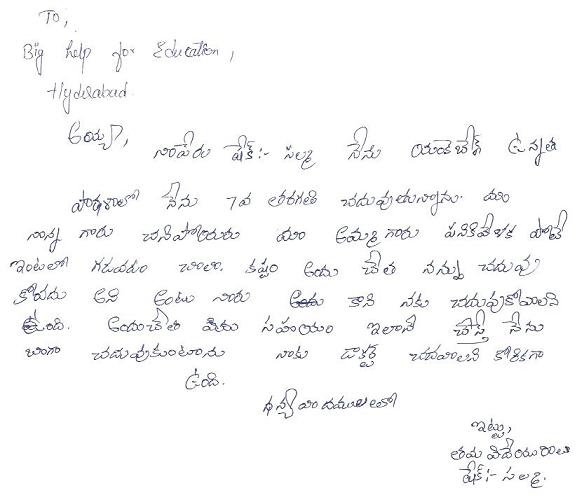 To,
Big help for Education,
Hyderabad.
అయ్యా,
నాపేరు షేక్:- సల్మా నేను యండపల్లి ఉన్నత
పాఠశాలలో నేను 7వ తరగతి చదువుతున్నాను. మా
నాన్న గారు చనిపోయరు మా అమ్మ గారు పనికివెళక పోతే
ఇంటలో గడవడం చాలా కష్టం అందు చేత నన్ను చదువు
కోవదు అని అంటు నారు కాని నకు చదువుకోవాలని
ఉంది. అందుచేత మీరు సహయం ఇలానే చేస్తే నేను
బాగా చదువుకుంటాను నాకు డాక్టర్ చదవాలని కోరికగా
ఉంది.
ధన్యావాదములతో
ఇట్లు,
తమ విదేయురాలు
షేక్:- సల్మా.